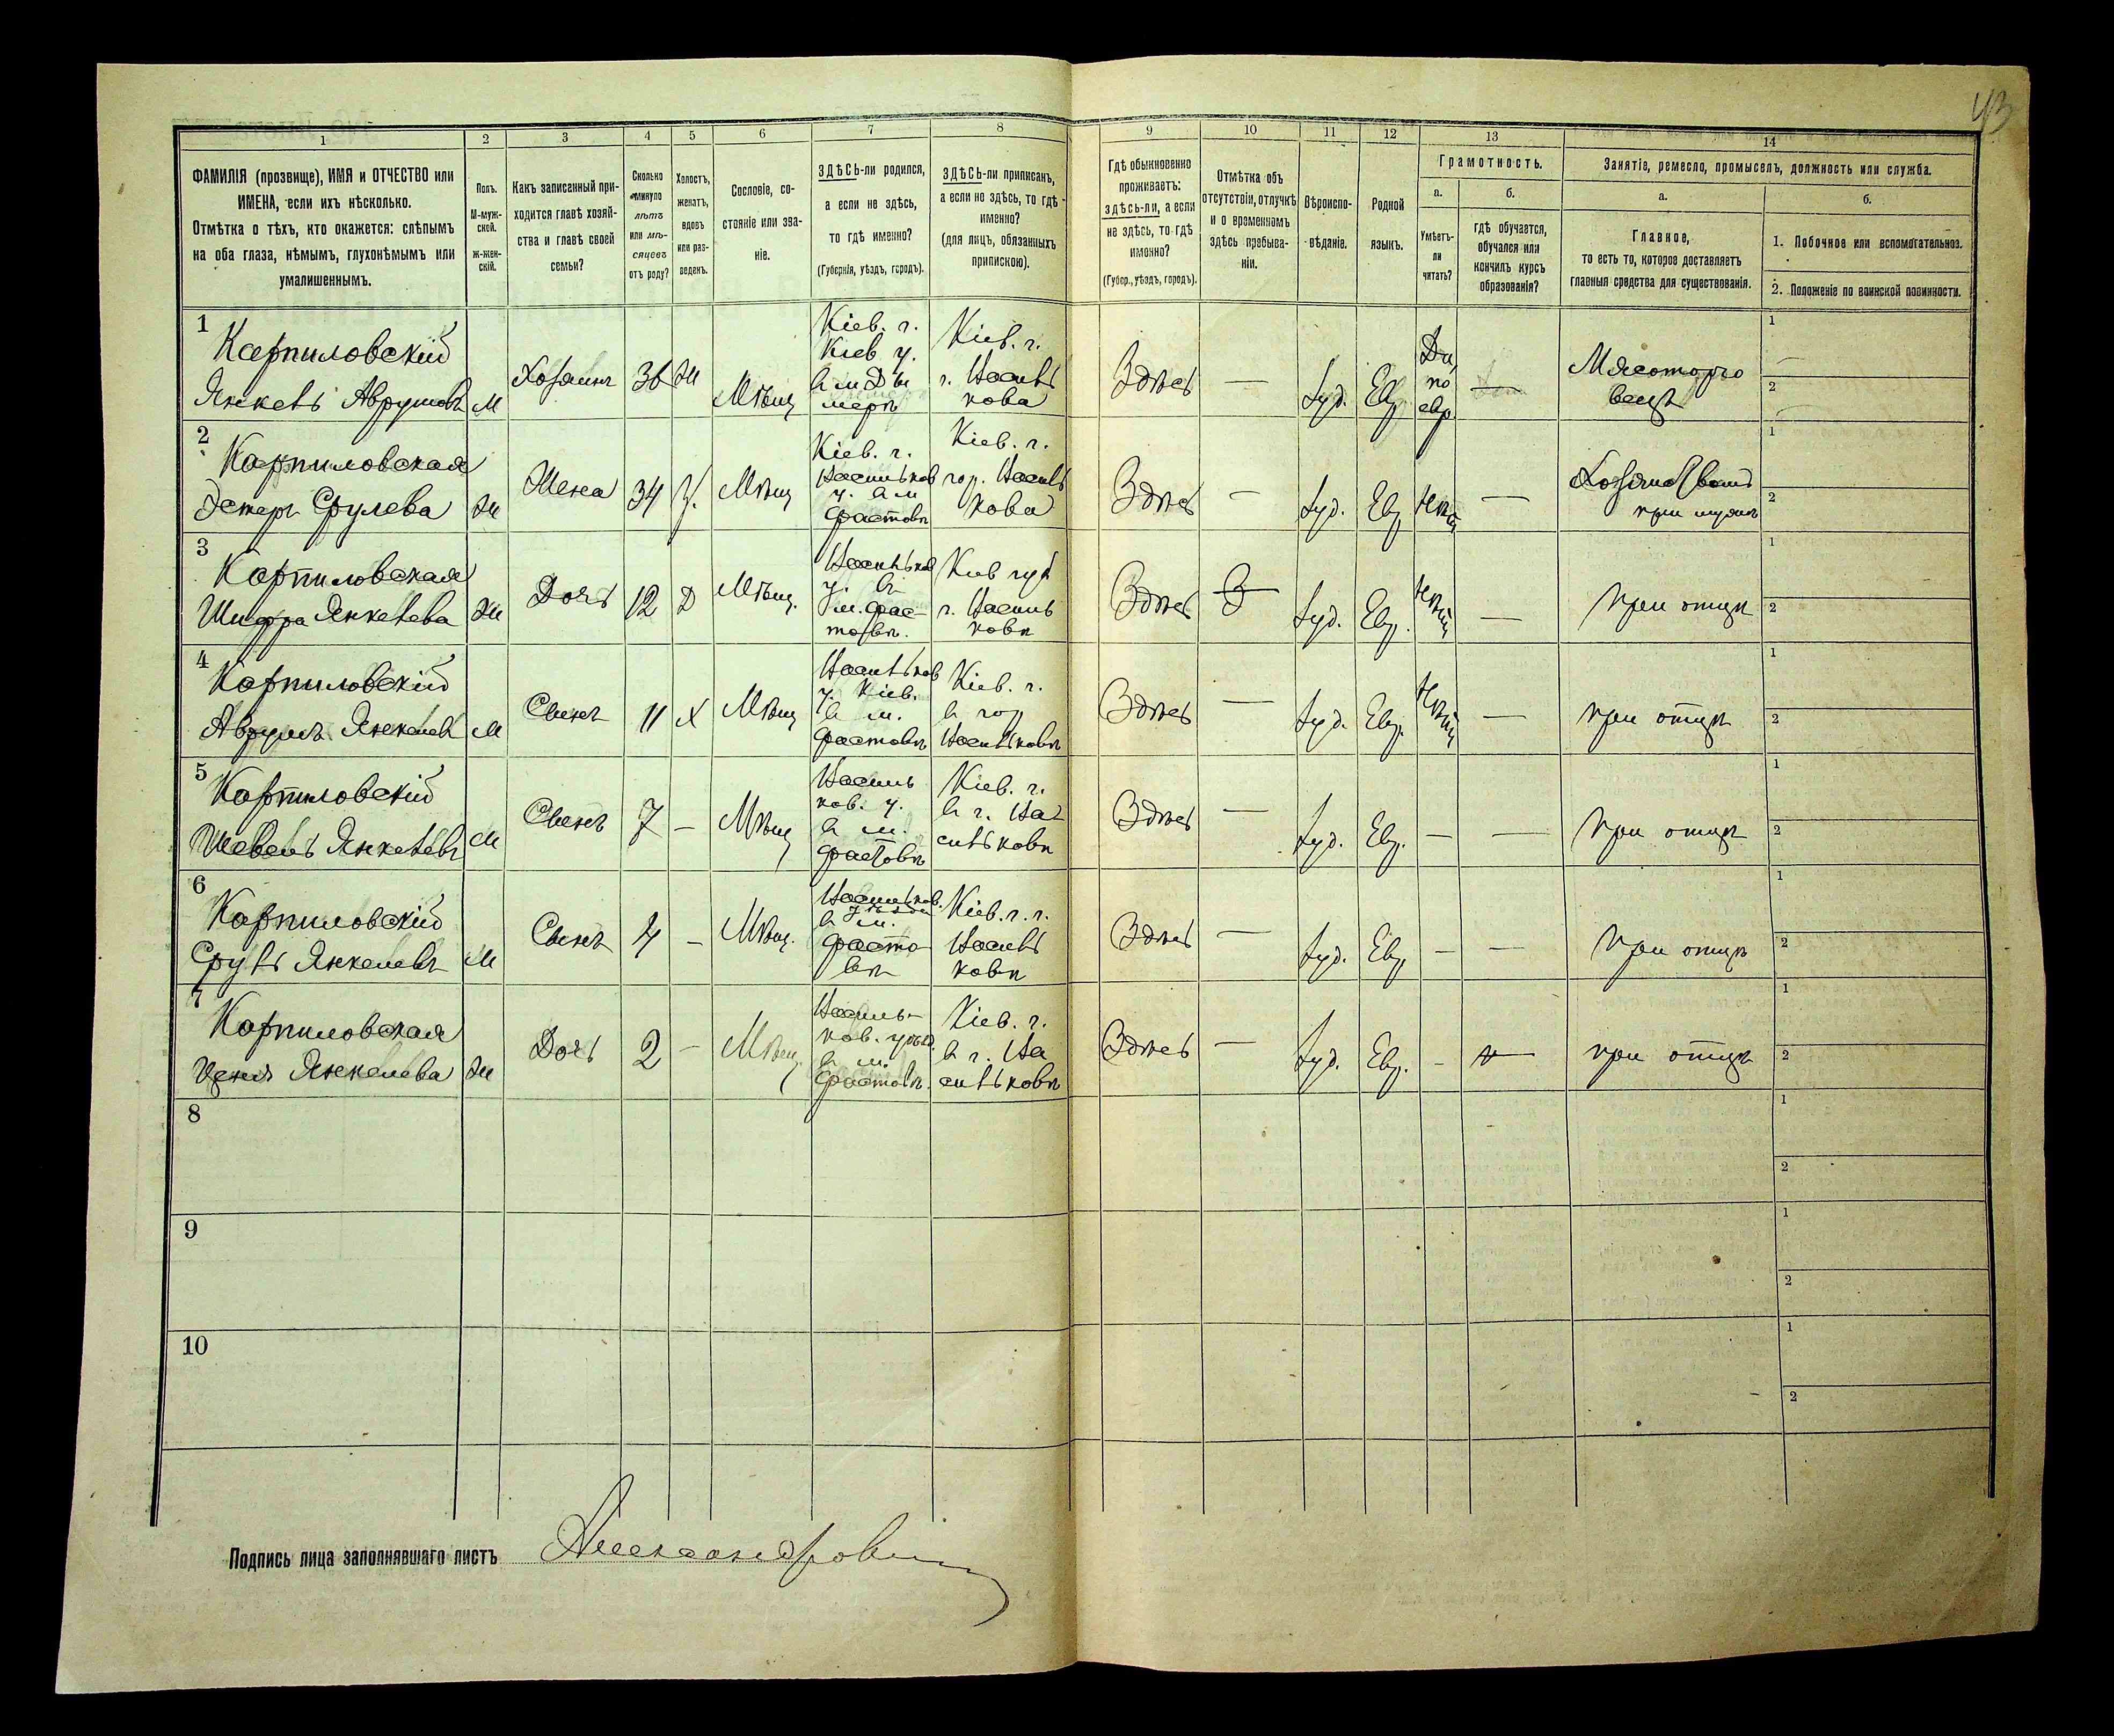 43
1
2
3
4
5
6
7
8
9
10
11
12
13
14
ФАМИЛІЯ (прозвище), ИМЯ и ОТЧЕСТВО или
ИМЕНА, если ихъ нѣсколько.
Отмѣтка о тѣхъ, кто окажется: слѣпымъ
на оба глаза, нѣмымъ, глухонѣмымъ или
умалишеннымъ.
Полъ.
М-муж-
ской.
Ж-жен-
скій.
Какъ записанный при-
ходится главѣ хозяй-
ства и главѣ своей
семьи?
Сколько
минуло
лѣтъ
или мѣ-
сяцевъ
отъ роду?
Холостъ,
женатъ,
вдовъ
или раз-
веденъ.
Сословіе, со-
стояніе или зва-
ніе.
ЗДѢСЬ-ли родился,
а если не здѣсь,
то гдѣ именно?
(Губернія, уѣздъ, городъ).
ЗДѢСЬ-ли приписанъ,
а если не здѣсь, то гдѣ
именно?
(для лицъ, обязанныхъ
припискою).
Гдѣ обыкновенно
проживаетъ:
здѣсь-ли, а если
не здѣсь, то гдѣ
именно?
(Губер., уѣздъ, городъ).
Отмѣтка объ
отсутствіи, отлучкѣ
и о временномъ
здѣсь пребыва-
ніи.
Вѣроиспо-
вѣданіе.
Родной
языкъ.
Грамотность.
а.
Умѣетъ-
ли
читать?
б.
гдѣ обучается,
обучался или
кончилъ курсъ
образованія?
Занятіе, ремесло, промыселъ, должность или служба.
а.
Главное,
то есть то, которое доставляетъ
главныя средства для существованія.
б.
1. Побочное или вспомогательное.
2. Положеніе по воинской повинности.
1
Карпиловскій
Янкель Аврумовъ
М
Хозяинъ
36
Ж
Мѣщ
Кіев. г.
Кіев у.
в м Ды
мерѣ
Кіев. г.
г. Василь
кова
Здѣсь
—
Іуд.
Евр.
Да,
по
евр.
Мясоторго
вецъ
1
2
2
Карпиловская
Эстеръ Срулева
Ж
Жена
34
З.
Мѣщ
Кіев. г.
Васильков
у. в м
Фастовѣ
Кіев. г.
гор. Василь
кова
Здѣсь
—
Іуд.
Евр
—
при мужѣ
1
2
3
Карпиловская
Шифра Янкелева
Ж
Дочь
12
Д
Мѣщ.
Васильков
у. в
м. Фас-
товѣ.
Кіев губ
г. Василь
ковѣ
Здѣсь
Іуд.
Евр.
—
при отцѣ
1
2
4
Карпиловскій
Аврумъ Янкелев
М
Сынъ
11
Х
Мѣщ
Васильков
у. Кіев.
в м.
Фастовѣ
Кіев. г.
в гор
Васильковѣ
Здѣсь
—
Іуд.
Евр.
—
при отцѣ
1
2
5
Карпиловскій
Шевель Янкелевъ
М
Сынъ
7
—
Мѣщ
Василь
ков. у.
в м.
Фастовѣ
Кіев. г.
в г. Ва
сильковѣ
Здѣсь
—
Іуд.
Евр.
—
—
при отцѣ
1
2
6
Карпиловскій
Сруль Янкелевъ
М
Сынъ
4
—
Мѣщ.
Васильков.
уѣзда
в м.
Фасто
вѣ
Кіев. г. г.
Василь
ковѣ
Здѣсь
—
Іуд.
Евр
—
—
при отцѣ
1
2
7
Карпиловская
Янкелева
Ж
Дочь
2
—
Мѣщ
Василь-
ков. уѣзд.
в м.
Фастовѣ.
Кіев. г.
в г. Ва
сильковѣ
Здѣсь
—
Іуд.
Евр.
—
—
при отцѣ
1
2
8
1
2
9
1
2
10
1
2
Подпись лица заполнявшаго листъ